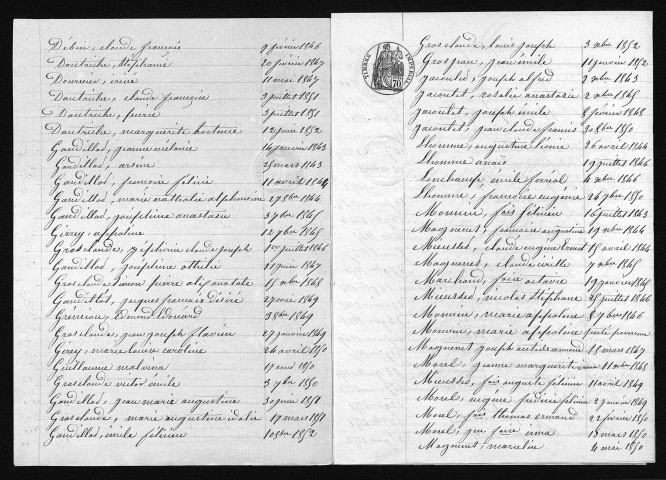 Débin, claude francois 9 février 1846
Doutriche, Stéphanie 20 février 1847
11 mai 1847
Doutriche, claude françois 3 juillet 1851
Doutriche, pierre 3 juillet 1851
Doutriche, marguerite hortense 12 juin 1852
Gaudillot, jeanne mélanie 14 janvier 1843
Gaudillot, arsène 25 mars 1843
Gaudillot, francoise félicie 11 avril 1844
Gaudillot, marie nathalie alphonsine 27 8bre 1844
Gaudillot, joséphine anastasie 3 7bre 1845
Girrey, appoline 12 7bre 1845
Grosclaude, zéphirin claude joseph 1er juillet 1846
Gaudillot, joséphine othilie 11 juin 1847
Grosclaude, simon pierre 15 xbre 1848
Gaudillot, jacques francais désiré 27 mai 1849
Edmond Edouard 3 8bre 1849
Grosclaude, jean joseph flavien 27 janvier 1849
Girey, marie louise caroline 24 avril 1850
Guillaume malvina 17 aout 1850
Grosclaude victor émile 3 7bre 1850
Gaudillot, jean marie augustine 30 juin 1851
Grosclaude, marie augustine idalie 17 mars 1851
Gaudillot, émile félicien 10 8bre 1852
TIMBRE IMPERIAL
70
Grosclaude, louis joseph 3 xbre 1852
Grosjean, jean émile 11 janvier 1852
Jacoutot, joseph alfred 2 xbre 1843
Jacoutot, rosalie anastasie 2 xbre 1845
Jacoutot, joseph émile 8 février 1848
Jacoutot, jean claude francois 30 8bre 1850
Lhomme, augustine léonie 26 avril 1844
Lhomme anais 19 juillet 1846
Lonchamp, émile ferréol 4 xbre 1846
Lhomme, francoise eugénie 24 7bre 1850
Monnin, fois félicien 16 juillet 1843
Magnenet, francoise augustine 19 xbre 1844
Mieusset, claude eugène Ernest 15 avril 1844
Magnenet, claude 7 xbre 1845
Marchand, foise octavie 19 janvier 1845
Mieusset, nicolas stéphane 25 juillet 1846
Monnin, marie appoline 8 7bre 1846
Monnin, marie appoline
Magnenet joseph 15 mars 1847
Morel, jeanne marguerite 11 xbre 1848
Mieusset, fois auguste félicien 11 avril 1849
Morel, eugène frédéric félicien 23 janvier 1849
Morel, fois thomas armand 22 février 1850
Morel, irma 13 mars 1850
Magnenet, 4 mai 1850